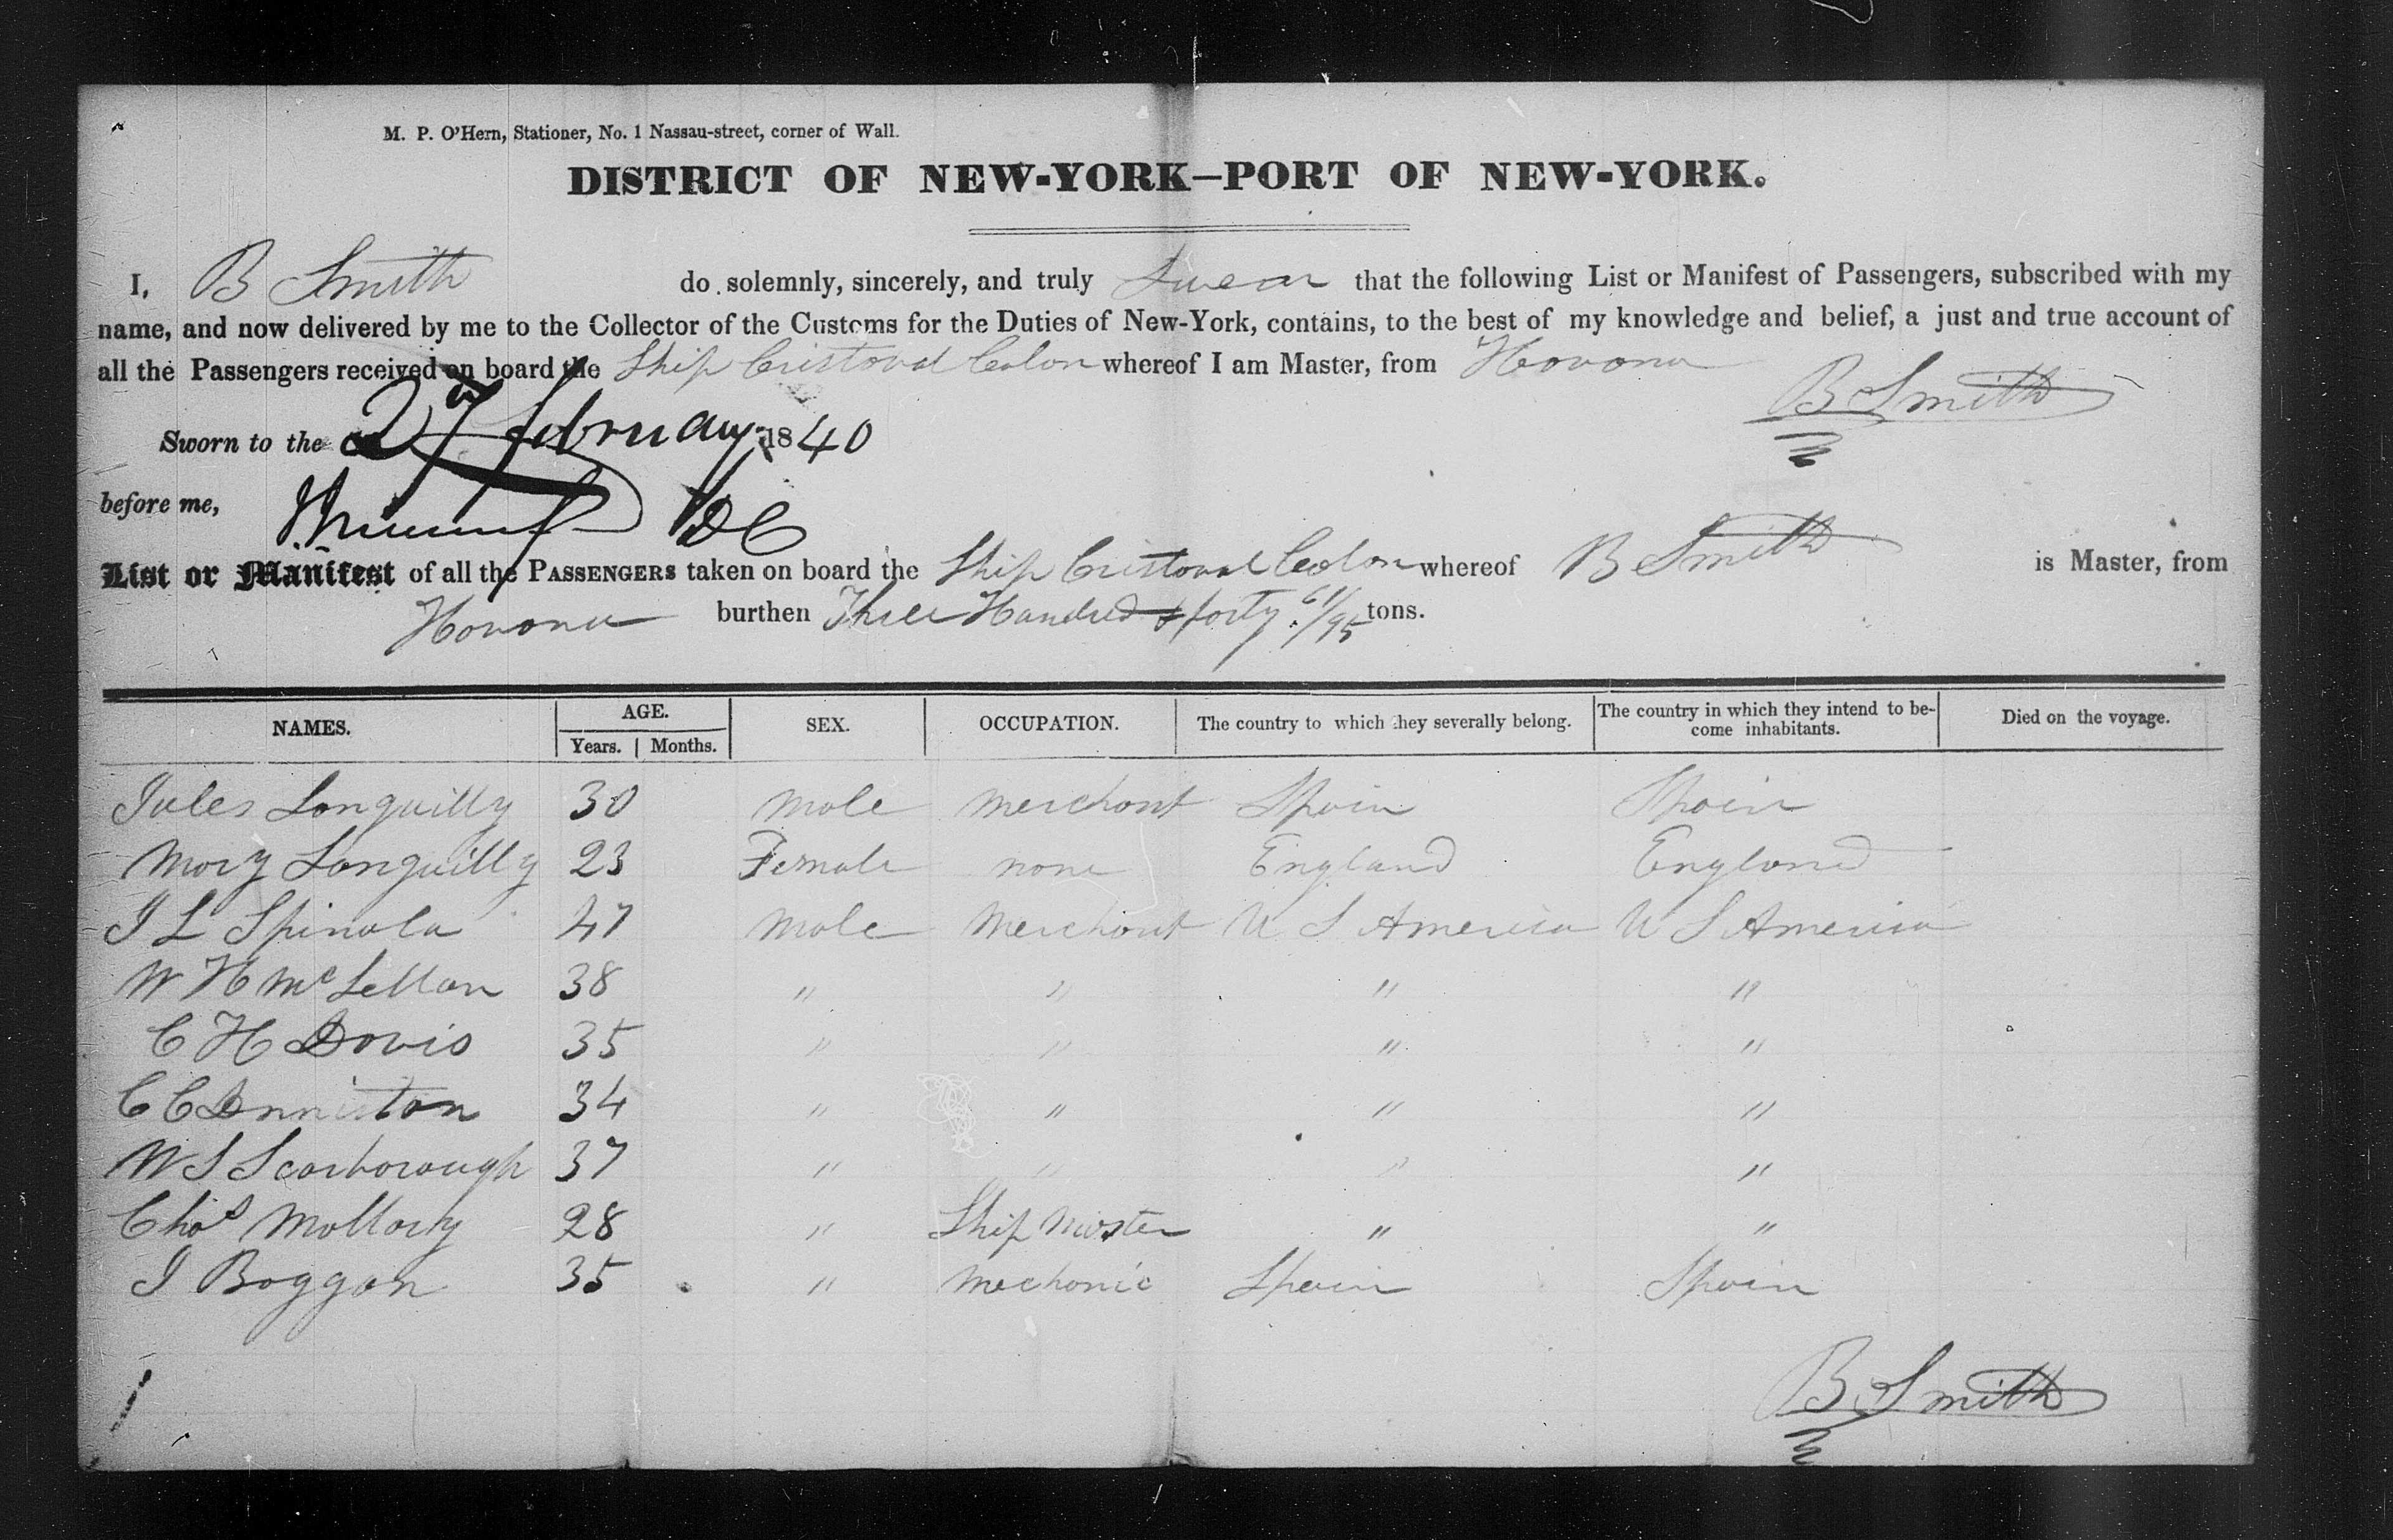 M. P. O'Hern, Stationer, No. 1 Nassau-street, corner of Wall.
DISTRICT OF NEW-YORK—PORT OF NEW-YORK.
I, B Smith do solemnly, sincerely, and truly Swear that the following List or Manifest of Passengers, subscribed with my
name, and now delivered by me to the Collector of the Customs for the Duties of New-York, contains, to the best of my knowledge and belief, a just and true account of
all the Passengers received on board the Ship Cristoval Colon whereof I am Master, from Havana
B Smith
Sworn to the 27 february 1840
before me,
List or Manifest of all the PASSENGERS taken on board the Ship Cristoval Colon whereof B Smith is Master, from
Havana burthen Three Hundred & forty 61/95 tons.
NAMES. AGE. Years. Months. SEX. OCCUPATION. The country to which they severally belong. The country in which they intend to become inhabitants. Died on the voyage.
Jules Longuilly 30 male merchant Spain Spain
Mary Longuilly 23 Female none England England
J L Spinola 47 Male Merchant U S America U S America
W H McLellan 38 " " " "
C H Davis 35 " " " "
C C Denniston 34 " " " "
W S Scarborough 37 " " " "
Chas Mallory 28 " Ship Master " "
J Boggan 35 " Mechanic Spain Spain
B Smith